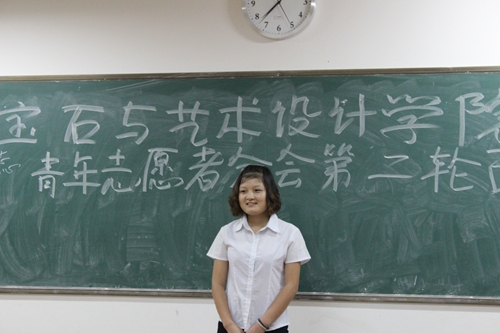 宝石与艺术设计学院
青年志愿者会第二轮